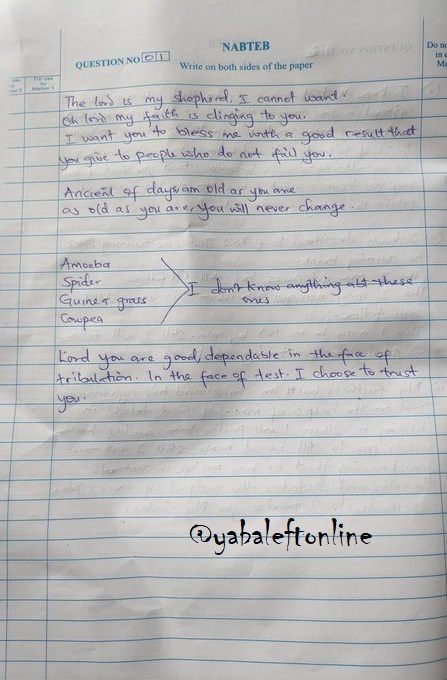 NABTEB
QUESTION NO 01
Write on both sides of the paper
Do no
in e
Ma
The lord is my shepherd, I cannot want.
Oh lord my faith is clinging to you.
I want you to bless me with a good result that
you give to people who do not fail you.
Ancient of days, am old as you are
as old as you are, you will never change.
Amoeba
Spider
Guinea grass
Cowpea
I don't know anything abt these
ones
Lord you are good, dependable in the face of
tribulation. In the face of test. I choose to trust
you.
@yabaleftonline